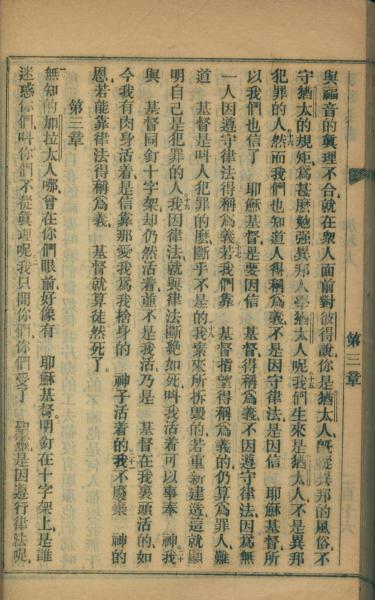 第三章
與福音的眞理不合、就在衆人面前對彼得說、你是猶太人、旣從異邦的風俗、不
守猶太的規矩、爲甚麼勉強異邦人學猶太人呢、我們生來是猶太人、不是異邦
犯罪的人、然而我們也知道人得稱爲義、不是因守律法、是因信 耶穌基督、所
以我們也信了 耶穌基督、是要因信 基督得稱爲義、不因遵守律法、因爲無
一人因遵守律法得稱爲義、若我們靠 基督指望得稱爲義的、仍算爲罪人、難
道 基督是叫人犯罪的麼、斷乎不是的、我素來所拆毀的、若重新建造、這就顯
明自己是犯罪的人、我因律法、就與律法斷絕如死、叫我活着可以事奉 神、我
與 基督同釘十字架、却仍然活着、並不是我活、乃是 基督在我裏頭活的、如
今我有肉身活着、是信靠那愛我爲我捨身的 神子活着的、我不廢棄 神的
恩、若能靠律法得稱爲義、 基督就算徒然死了、
第三章
無知的加拉太人哪、曾在你們眼前、好像有 耶穌基督明釘在十字架上、是誰
迷惑你們、叫你們不從眞理呢、我只問你們、你們受了 聖靈、是因遵行律法呢、